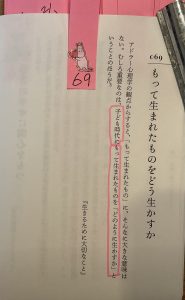 069
もって生まれたものをどう生かすか
アドラー心理学の観点からすると、「もって生まれたもの」に、そんなに大きな意味は
ない。むしろ重要なのは、子ども時代にもって生まれたものを「どのように生かすか」と
いうことのほうだ。
『生きるために大切なこと』
69